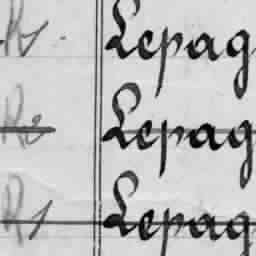 R1. Lepag
R2 Lepag
R1 Lepag